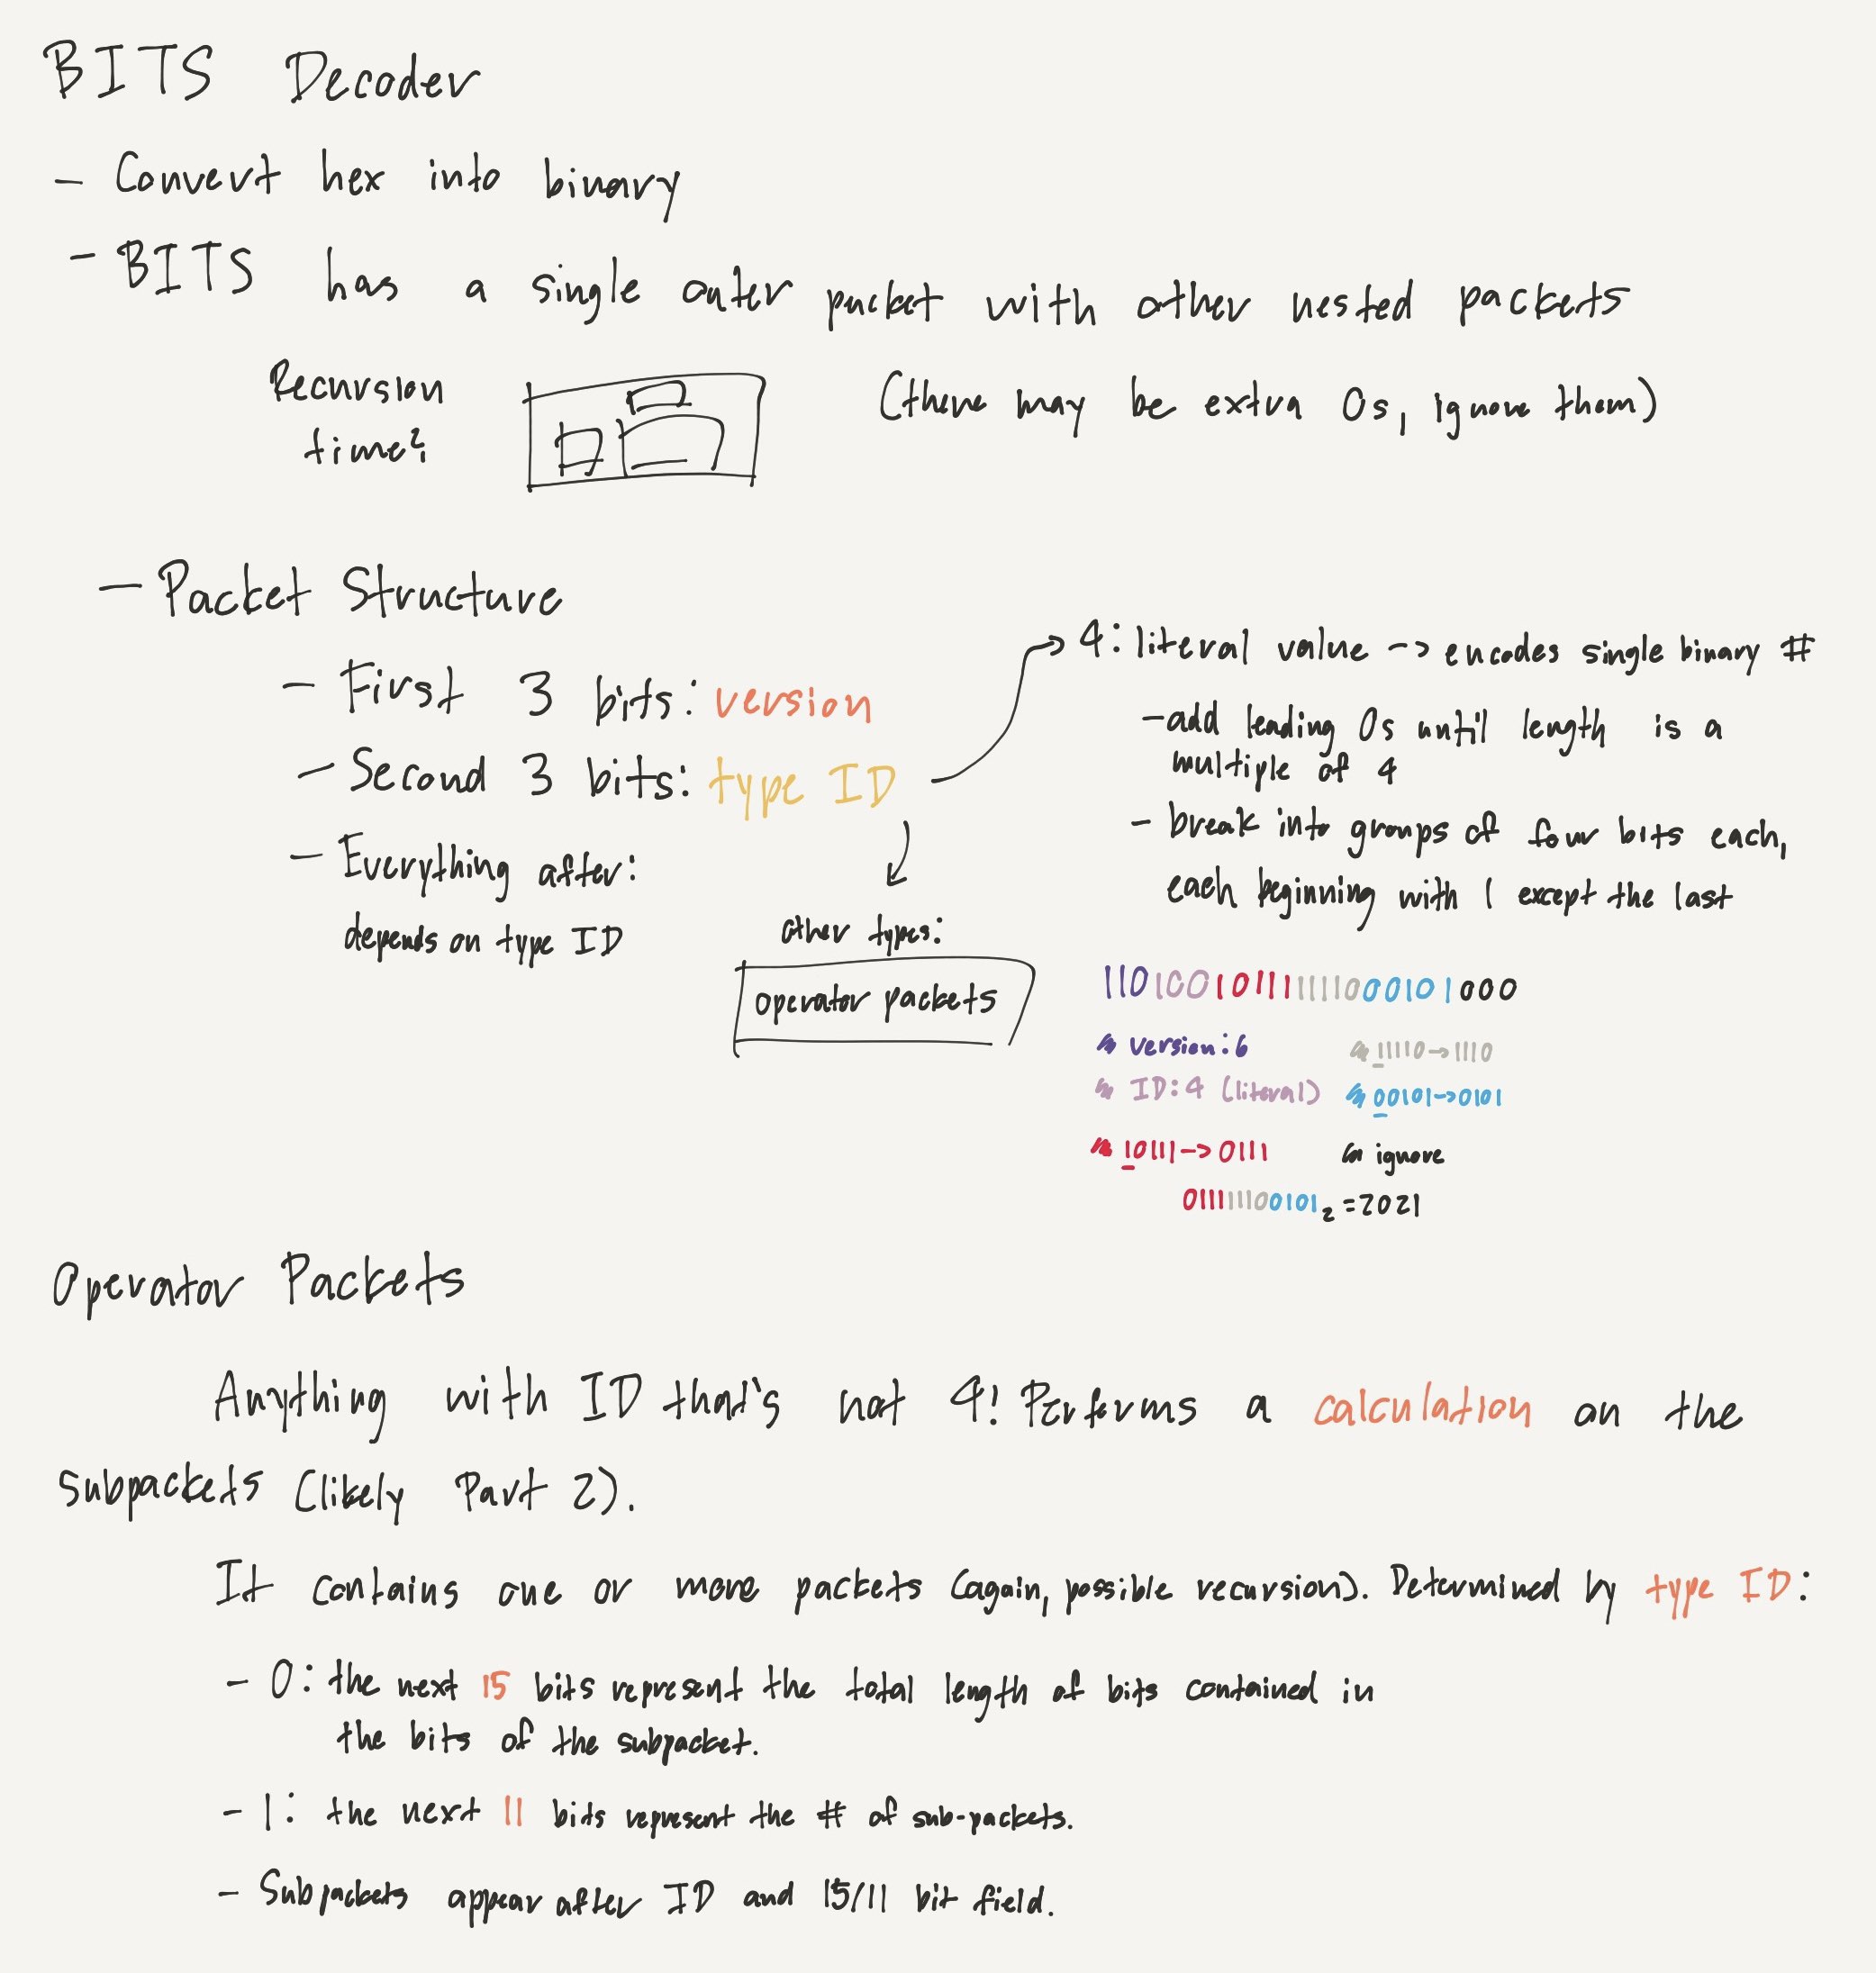 BITS Decoder
- Convert hex into binary
- BITS has a single outer packet with other nested packets
Recursion
time?
(there may be extra 0s, ignore them)
- Packet Structure
- First 3 bits: version
- Second 3 bits: type ID
- Everything after:
depends on type ID
other types:
operator packets
4: literal value -> encodes single binary #
- add leading 0s until length is a
multiple of 4
- break into groups of four bits each,
each beginning with 1 except the last
110100101111111000101000
version: 6
ID: 4 (literal)
10111 -> 0111
11110 -> 1110
00101 -> 0101
ignore
011111100101₂ = 2021
Operator Packets
Anything with ID that's not 4! Performs a calculation on the
subpackets (likely Part 2).
It contains one or more packets (again, possible recursion). Determined by type ID:
- 0: the next 15 bits represent the total length of bits contained in
the bits of the subpacket.
- 1: the next 11 bits represent the # of sub-packets.
- Subpackets appear after ID and 15/11 bit field.